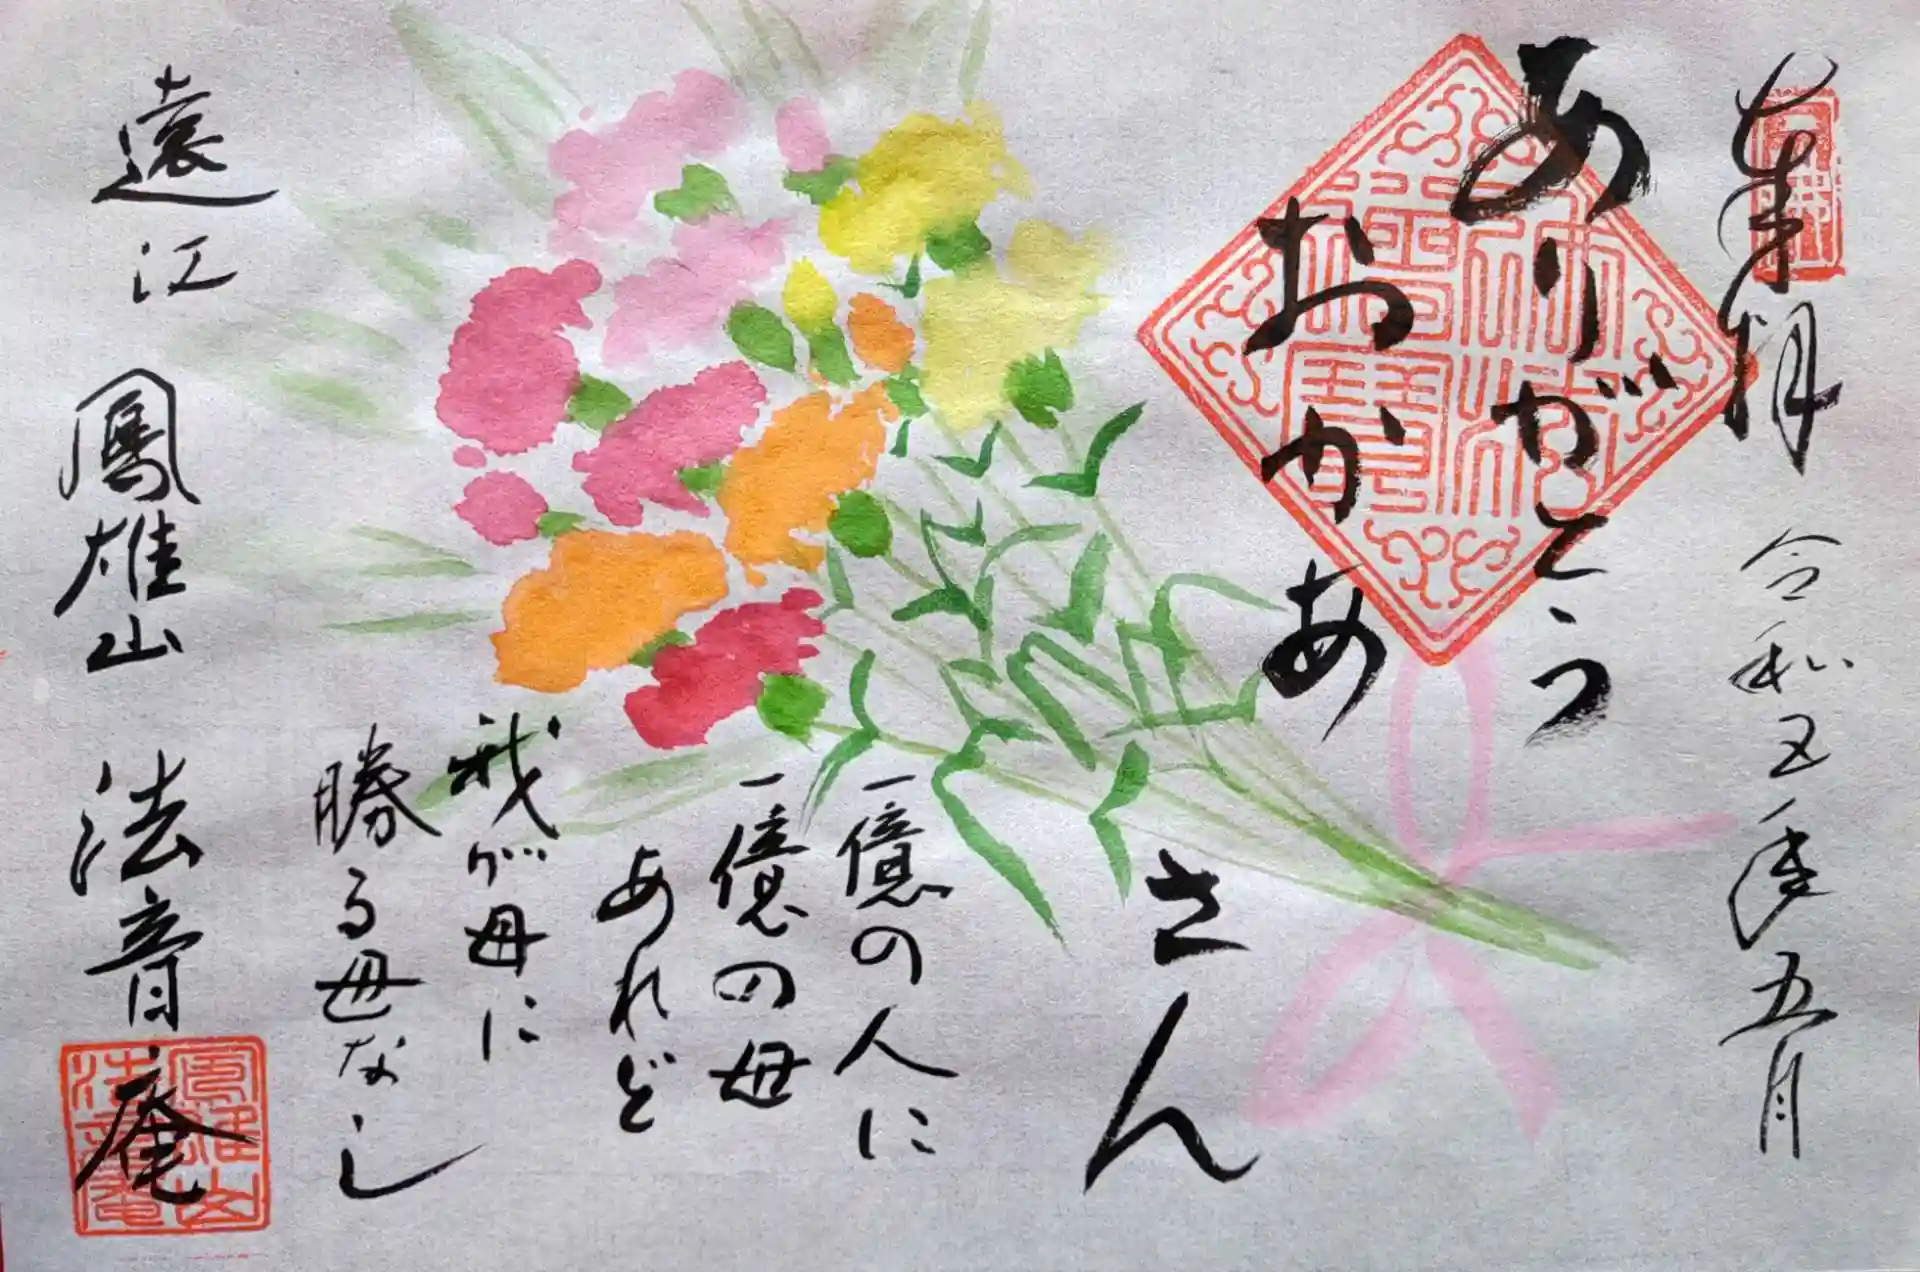 奉拝
令和五年五月
ありがとう
おかあ
さん
一億の人に
一億の母
あれど
我が母に
勝る母なし
遠江
鳳雄山
法音庵